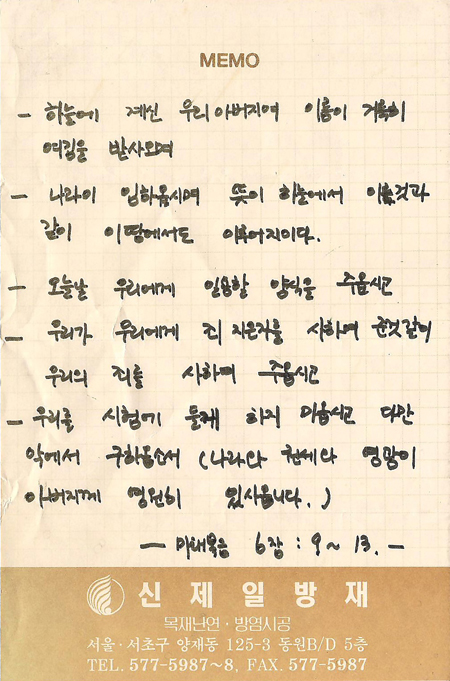 MEMO
– 하늘에 계신 우리 아버지여 이름이 거룩히
여김을 받사오며
– 나라이 임하옵시며 뜻이 하늘에서 이룬것과
같이 이땅에서도 이루어지이다.
– 오늘날 우리에게 일용할 양식을 주옵시고
– 우리가 우리에게 죄 지은자를 사하여 준것같이
우리의 죄를 사하여 주옵시고
– 우리를 시험에 들게 하지 마옵시고 다만
악에서 구하옵소서 (나라와 권세와 영광이
아버지께 영원히 있사옵니다.)
– 마태복음 6장 : 9~13. –
신제일방재
목재난연·방염시공
서울·서초구 양재동 125-3 동원B/D 5층
TEL. 577-5987~8, FAX. 577-5987